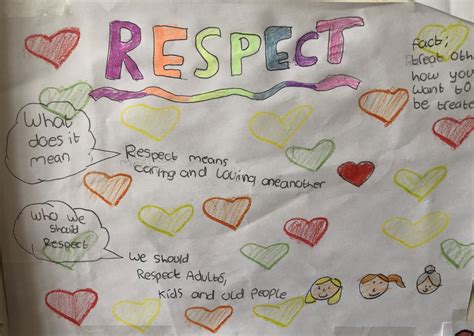 RESPECT
fact;
treat oth
how you
want to
be treate
What
does it
mean
Respect means
caring and loving oneanother
Who we
should
Respect
we should
Respect Adults,
kids and old people